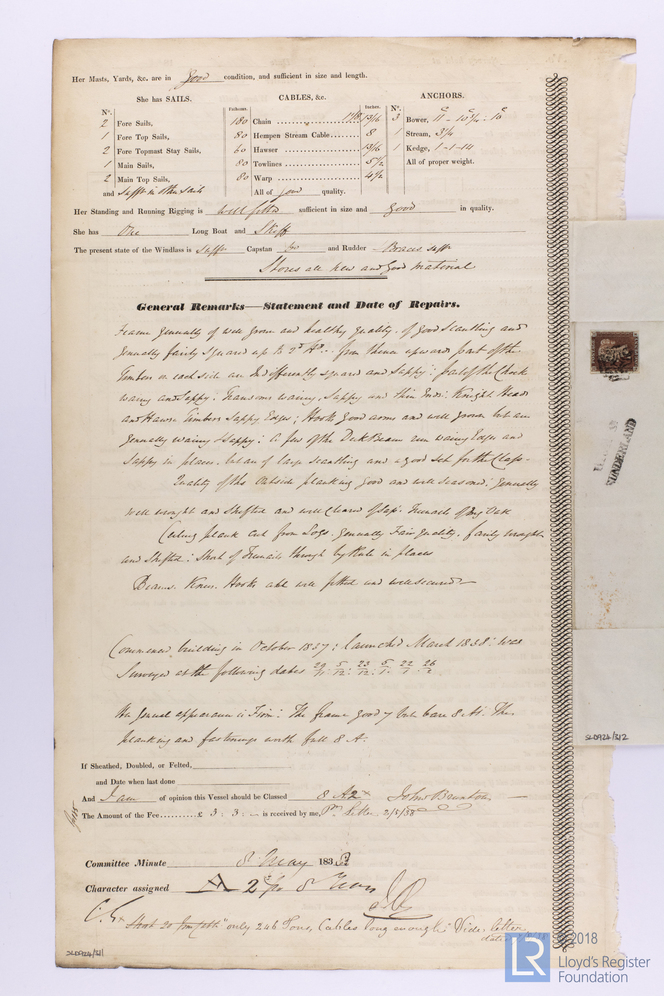 Her Masts, Yards, &c. are in good condition, and sufficient in size and length.
She has SAILS.
Nº.
2 Fore Sails,
1 Fore Top Sails,
2 Fore Topmast Stay Sails,
1 Main Sails,
2 Main Top Sails,
and
CABLES, &c.
Fathoms. Inches.
180 Chain
80 Hempen Stream Cable 8
60 Hawser
80 Towlines 5½
80 Warp 4½
All of good quality.
ANCHORS.
Nº.
3 Bower,
1 Stream, 3/4
1 Kedge, 1-1-14
All of proper weight.
Her Standing and Running Rigging is well fitted sufficient in size and good in quality.
She has One Long Boat and Skiff
The present state of the Windlass is Suff Capstan and Rudder Braces suff
Stores all new and good material
General Remarks—Statement and Date of Repairs.
Frame generally of well grown and healthy quality, of good Scantling and
generally fairly squared up to from thence upward part of the
Timbers on each side are indifferently squared and sappy: part of the Chock
waney and sappy: Transoms waney, sappy and thin Ends: Knight Heads
and Hawse Timbers sappy Edges; Hooks good arms and well grown but are
generally waney & sappy: A few of the Deck Beams run waney Edges and
sappy in places, but are of large scantling and a good set for the Class -
Quality of the outside planking good and well seasoned: generally
well wrought and shifted and well cleared of sap: Trunnels of Dry Oak
Ceiling plank cut from Logs. generally Fair quality. fairly wrought
and shifted: Short of Trunails through by Rule in places
Beams. Knees. Hooks all well fitted and well secured -
Commenced building in October 1837: launched March 1838: was
Surveyed at the following dates
Her general appearance is Firm: The frame good but bare 8 A: The
planking and fastenings worth full 8 A:
If Sheathed, Doubled, or Felted,
and Date when last done
And I am of opinion this Vessel should be Classed 8 A John Brunton
The Amount of the Fee £ 3 : 3 : — is received by me, Pr. Letter 2/5/38
Committee Minute 8 May 1838
Character assigned A 8 Years
Short 20 only 246 Tons, Cables long enough: Vide letter
SLD924/31
SLD924/312
LR
© 2018
Lloyd's Register
Foundation